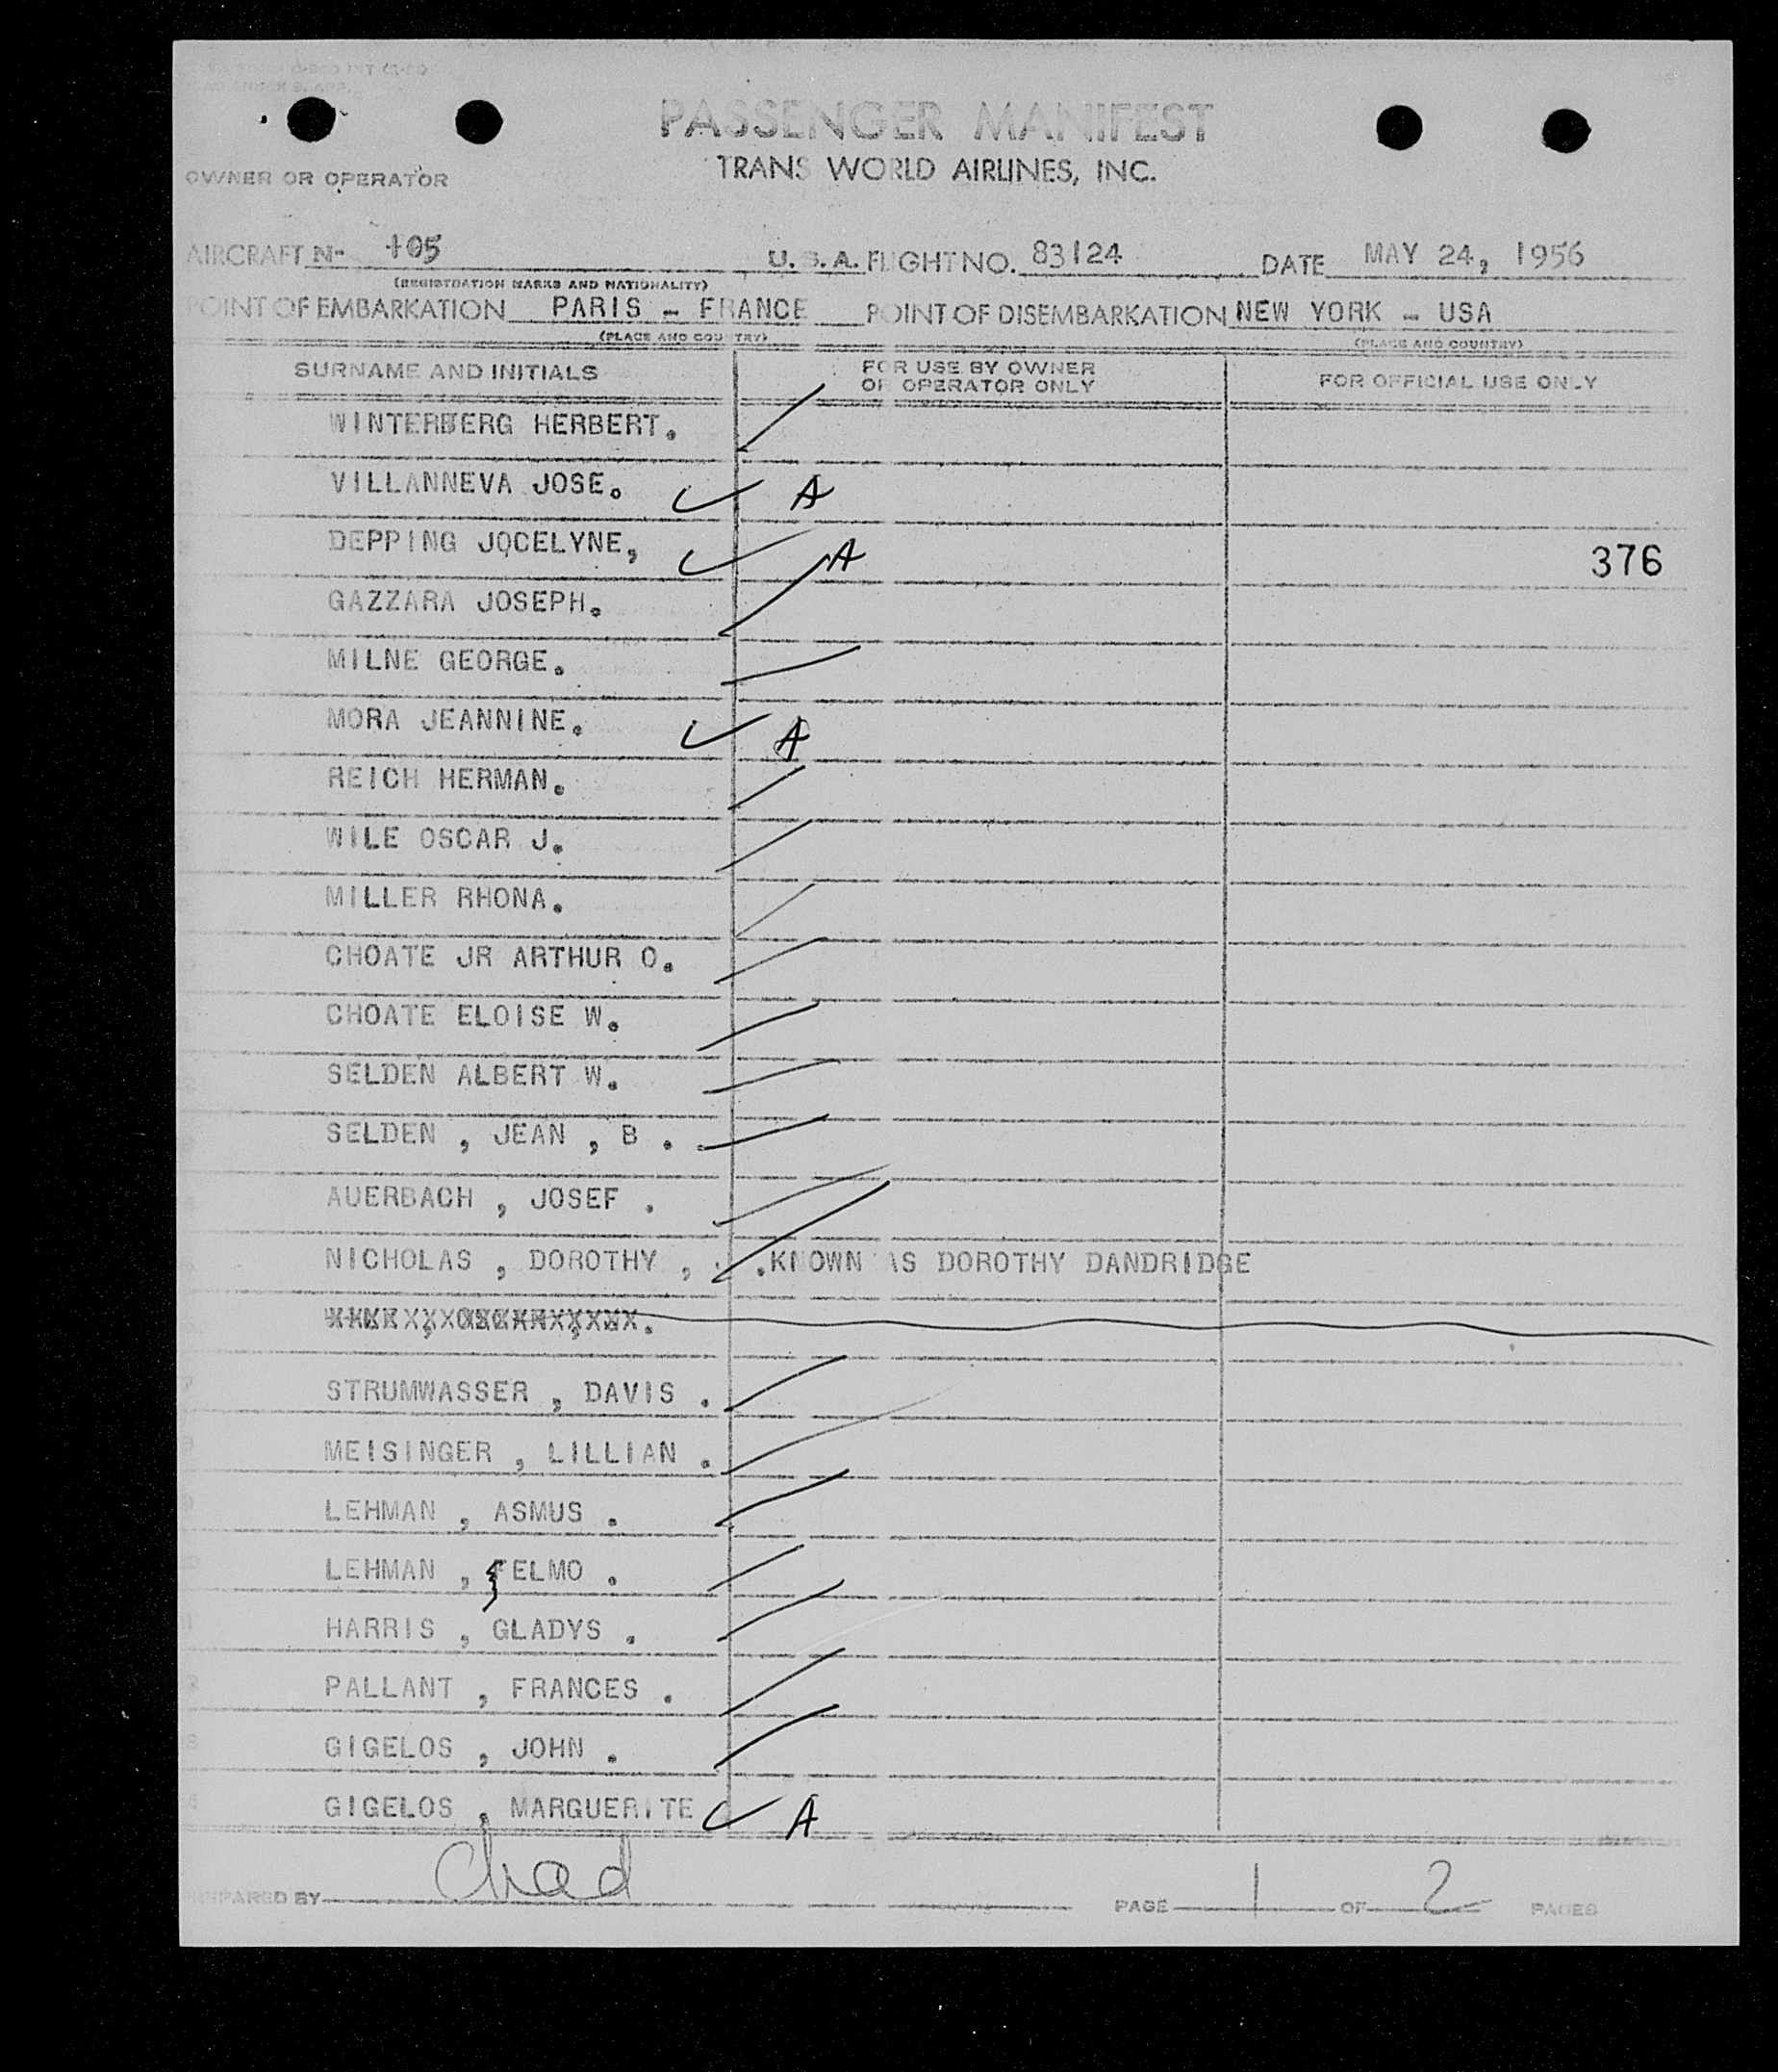 PASSENGER MANIFEST
TRANS WORLD AIRLINES, INC.
OWNER OR OPERATOR
AIRCRAFT N- 105 U. S. A. FLIGHT NO. 83124 DATE MAY 24, 1956
(REGISTRATION MARKS AND NATIONALITY)
POINT OF EMBARKATION PARIS - FRANCE POINT OF DISEMBARKATION NEW YORK - USA
(PLACE AND COUNTRY) (PLACE AND COUNTRY)
SURNAME AND INITIALS FOR USE BY OWNER OR OPERATOR ONLY FOR OFFICIAL USE ONLY
WINTERBERG HERBERT.
VILLANNEVA JOSE. A
DEPPING JOCELYNE, A 376
GAZZARA JOSEPH.
MILNE GEORGE.
MORA JEANNINE. A
REICH HERMAN.
WILE OSCAR J.
MILLER RHONA.
CHOATE JR ARTHUR O.
CHOATE ELOISE W.
SELDEN ALBERT W.
SELDEN , JEAN , B .
AUERBACH , JOSEF .
NICHOLAS , DOROTHY , .KNOWN AS DOROTHY DANDRIDGE
STRUMWASSER , DAVIS .
MEISINGER , LILLIAN .
LEHMAN , ASMUS .
LEHMAN , ELMO .
HARRIS , GLADYS .
PALLANT , FRANCES .
GIGELOS , JOHN .
GIGELOS , MARGUERITE A
PREPARED BY Chad PAGE 1 OF 2 PAGES